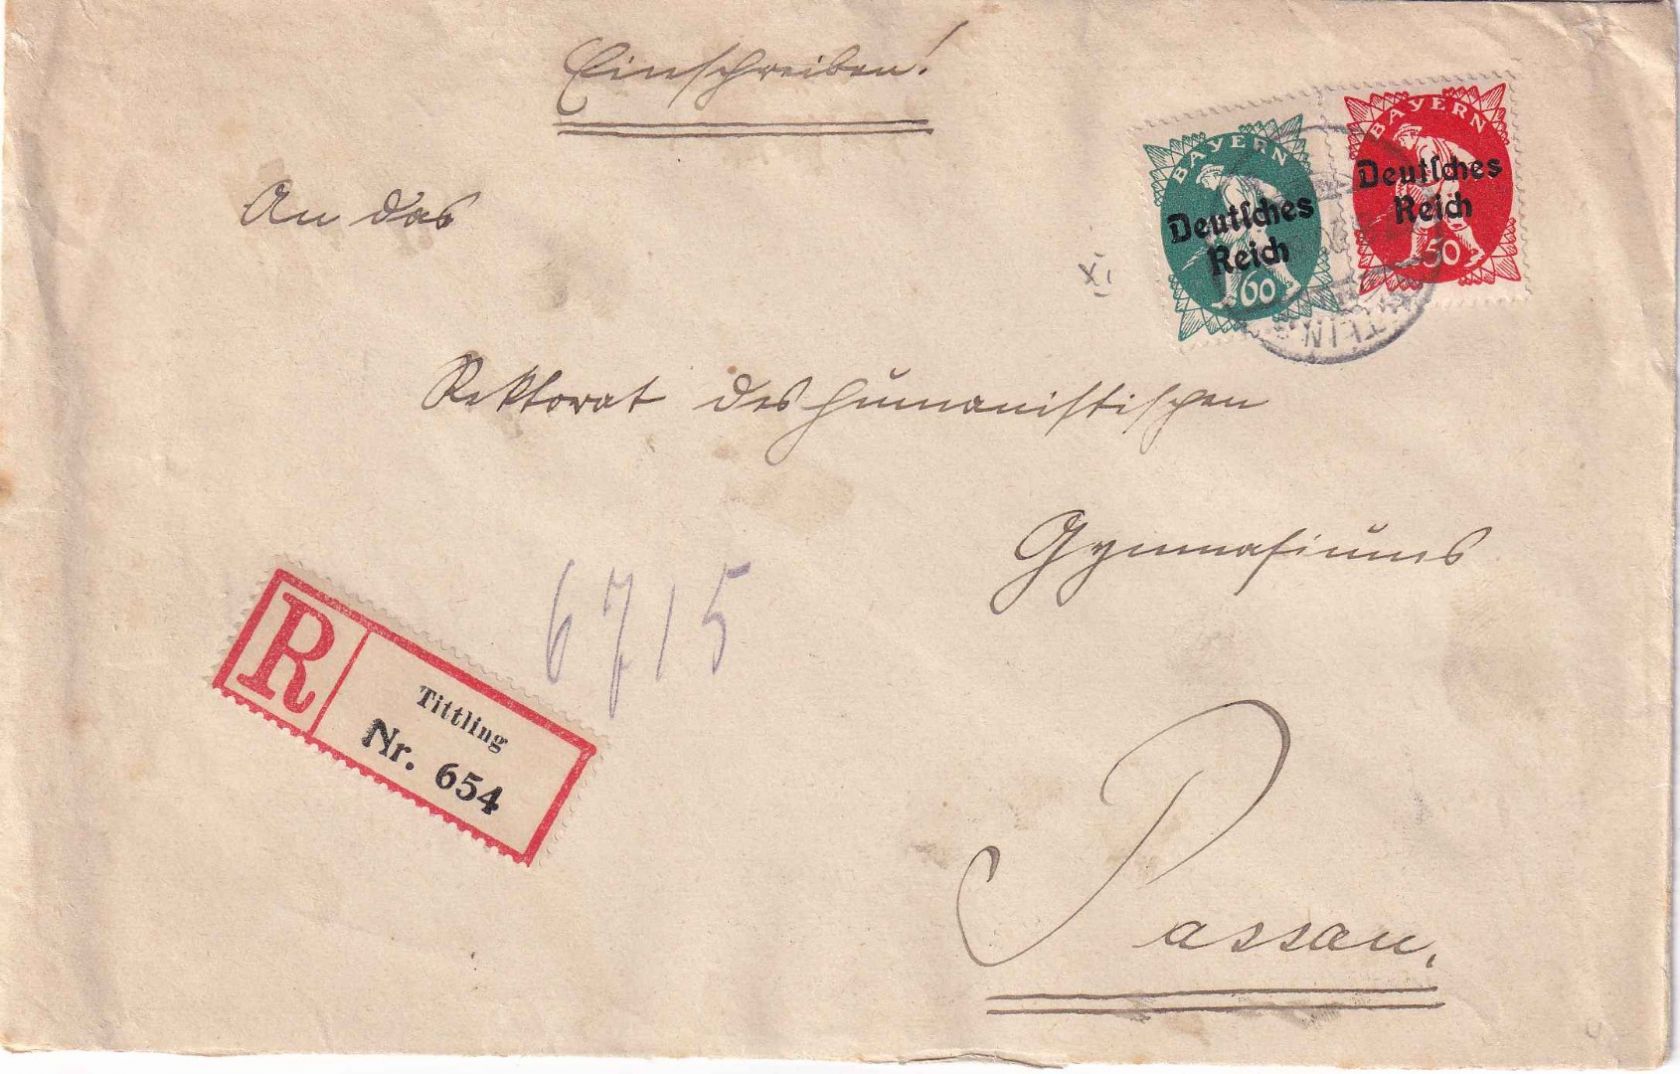 Einschreiben!
BAYERN
Deutsches
Reich
60
BAYERN
Deutsches
Reich
50
An das
XI
Rektorat des humanistischen
Gymnasiums
6715
R
Tittling
Nr. 654
Passau.